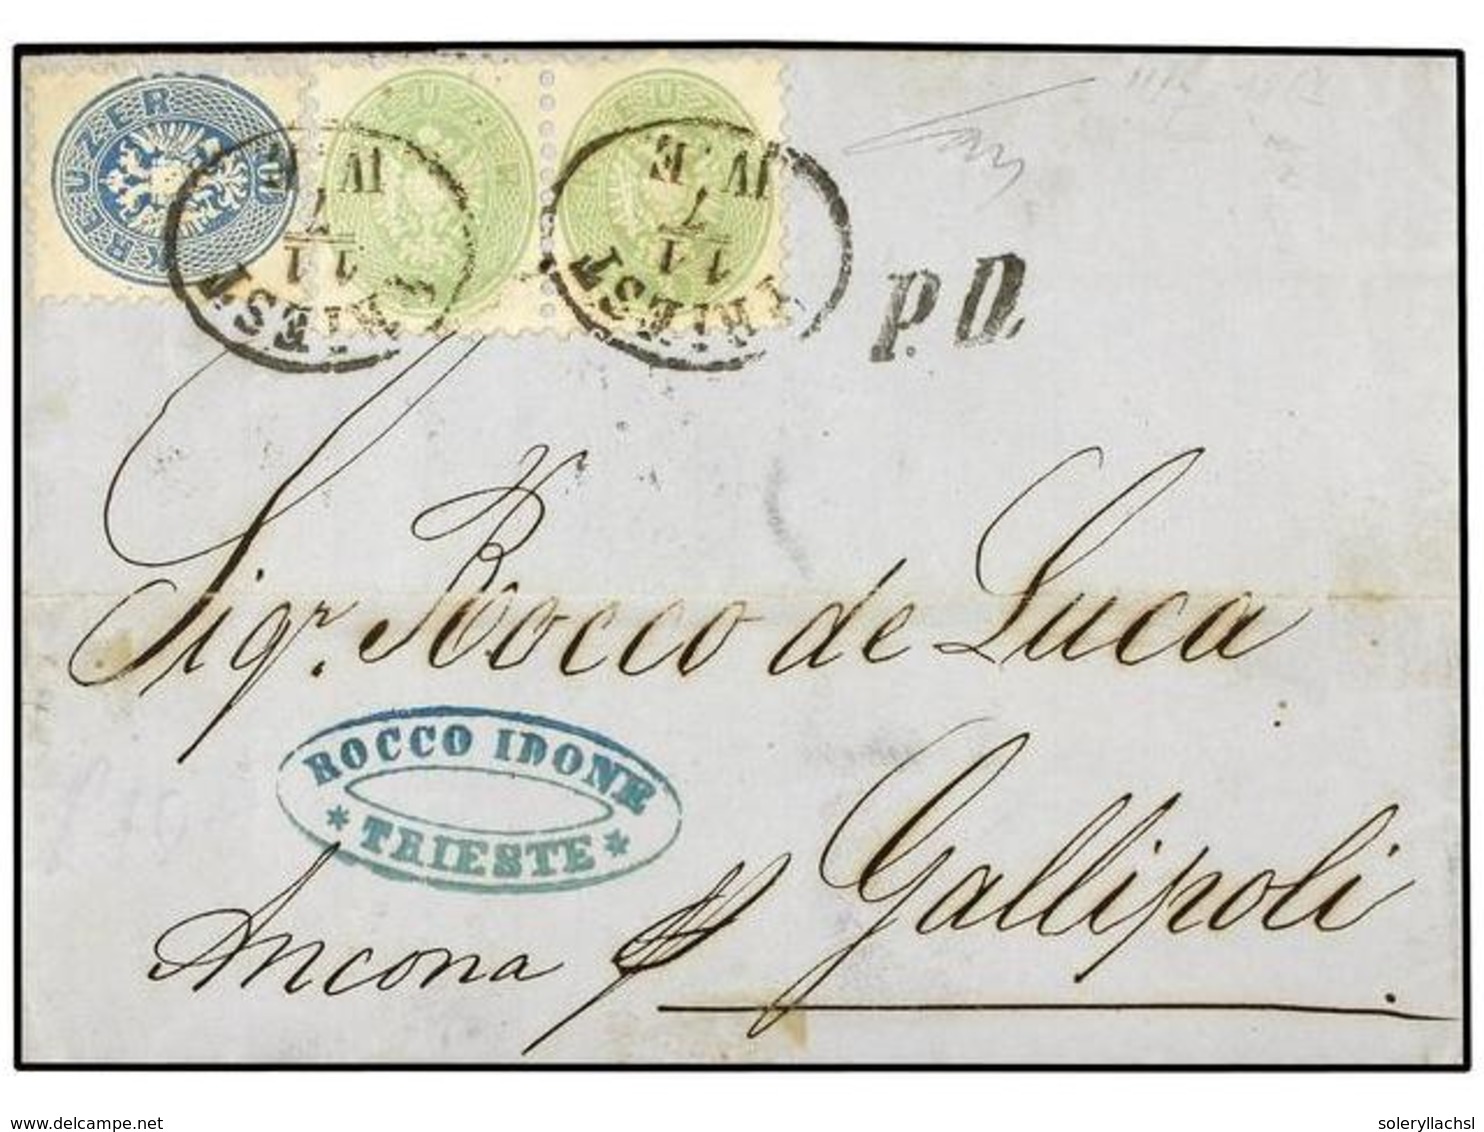 KREUZER
KREUZER
KREUZER
TRIEST
11
7
IV. E
TRIEST
11
7
IV. E
P.D.
Sigr. Rocco de Luca
ROCCO IDONE
* TRIESTE *
Ancona p Gallipoli.
www.delcampe.net
soleryllachsl